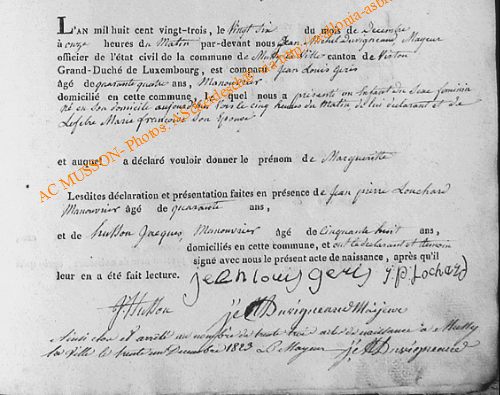 L'AN mil huit cent vingt-trois, le vingt six du mois de Decembre
à onze heures du Matin par-devant nous Jean Michel Duvigneaud Mayeur
officier de l'état civil de la commune de Mussy la Ville canton de Virton
Grand-Duché de Luxembourg, est comparu Jean Louis Geris
âgé de quarante quatre ans, Manouvrier
domicilié en cette commune, lequel nous a présenté un Enfant du Sexe feminin
né en Son domicile aujourd'hui les cinq heures du Matin de lui declarant et de
Lefebre Marie françoise Son Epouse
et auquel a déclaré vouloir donner le prénom de Margueritte
Lesdites déclaration et présentation faites en présence de Jean pierre Louchard
Manouvrier âgé de quarante ans,
et de husson Jacques Manouvrier âgé de Cinquante huit ans,
domiciliés en cette commune, et ont le declarant et temoin
signé avec nous le présent acte de naissance, après qu'il
leur en a été fait lecture. jean louis geris j p Lochard
J. Husson je M Duvigneaud Majeur
Ainsi clos et arreté au nombre de trente trois actes de naissance à Mussy
la Ville le trente un Decembre 1823 Le Mayeur je M Duvigneaud
AC MUSSON- Photos: